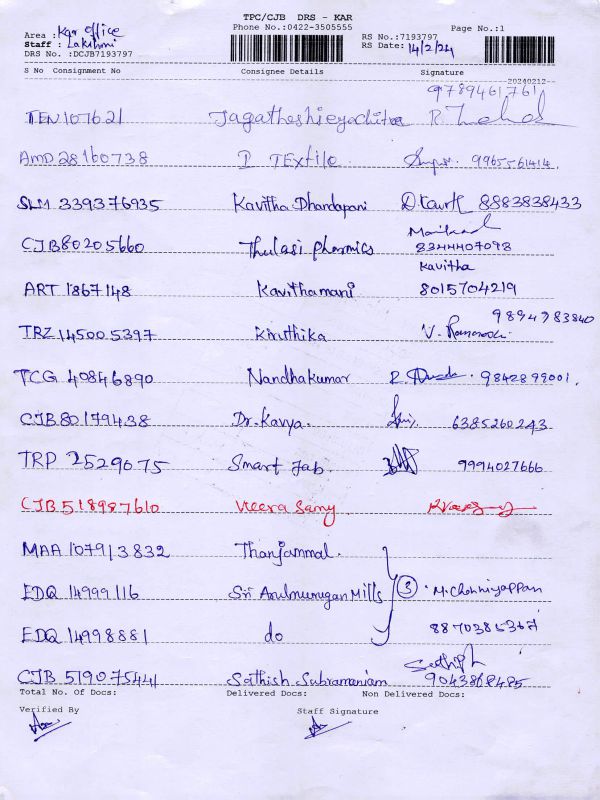 TPC/CJB DRS - KAR
Area : Kgr office Phone No.:0422-3505555 RS No.:7193797 Page No.:1
Staff : Lakshmi RS Date: 14/2/24
DRS No. :DCJB7193797
S No Consignment No Consignee Details Signature
20240212
9789461761
TEN107621 Jagatheshieyachitra
AMD 28160738 I TExtile 9965561414
SLM 339376935 Kavitha Dhandapani D.kavitha 8883838433
CJB80205660 Thulasi pharmics 8344407098
Kavitha
ART 1867148 Kavithamani 8015704219
9894783840
TRZ 145005397 Kiruthika
TCG 40846890 Nandhakumar 9842899001.
CJB80179438 Dr.Kavya. 6385260243
TRP 2529675 Smart Jab 9994027666
CJB518987610 Veera Samy
MAA 107913832 Thanjammal.
EDQ 14999116 Sri Arulmurugan Mills 3 M.Chinniyappan
EDQ 14998881 do 8870385367
CJB 519075441 Sathish Subramaniam 9043868485
Total No. Of Docs: Delivered Docs: Non Delivered Docs:
Verified By Staff Signature